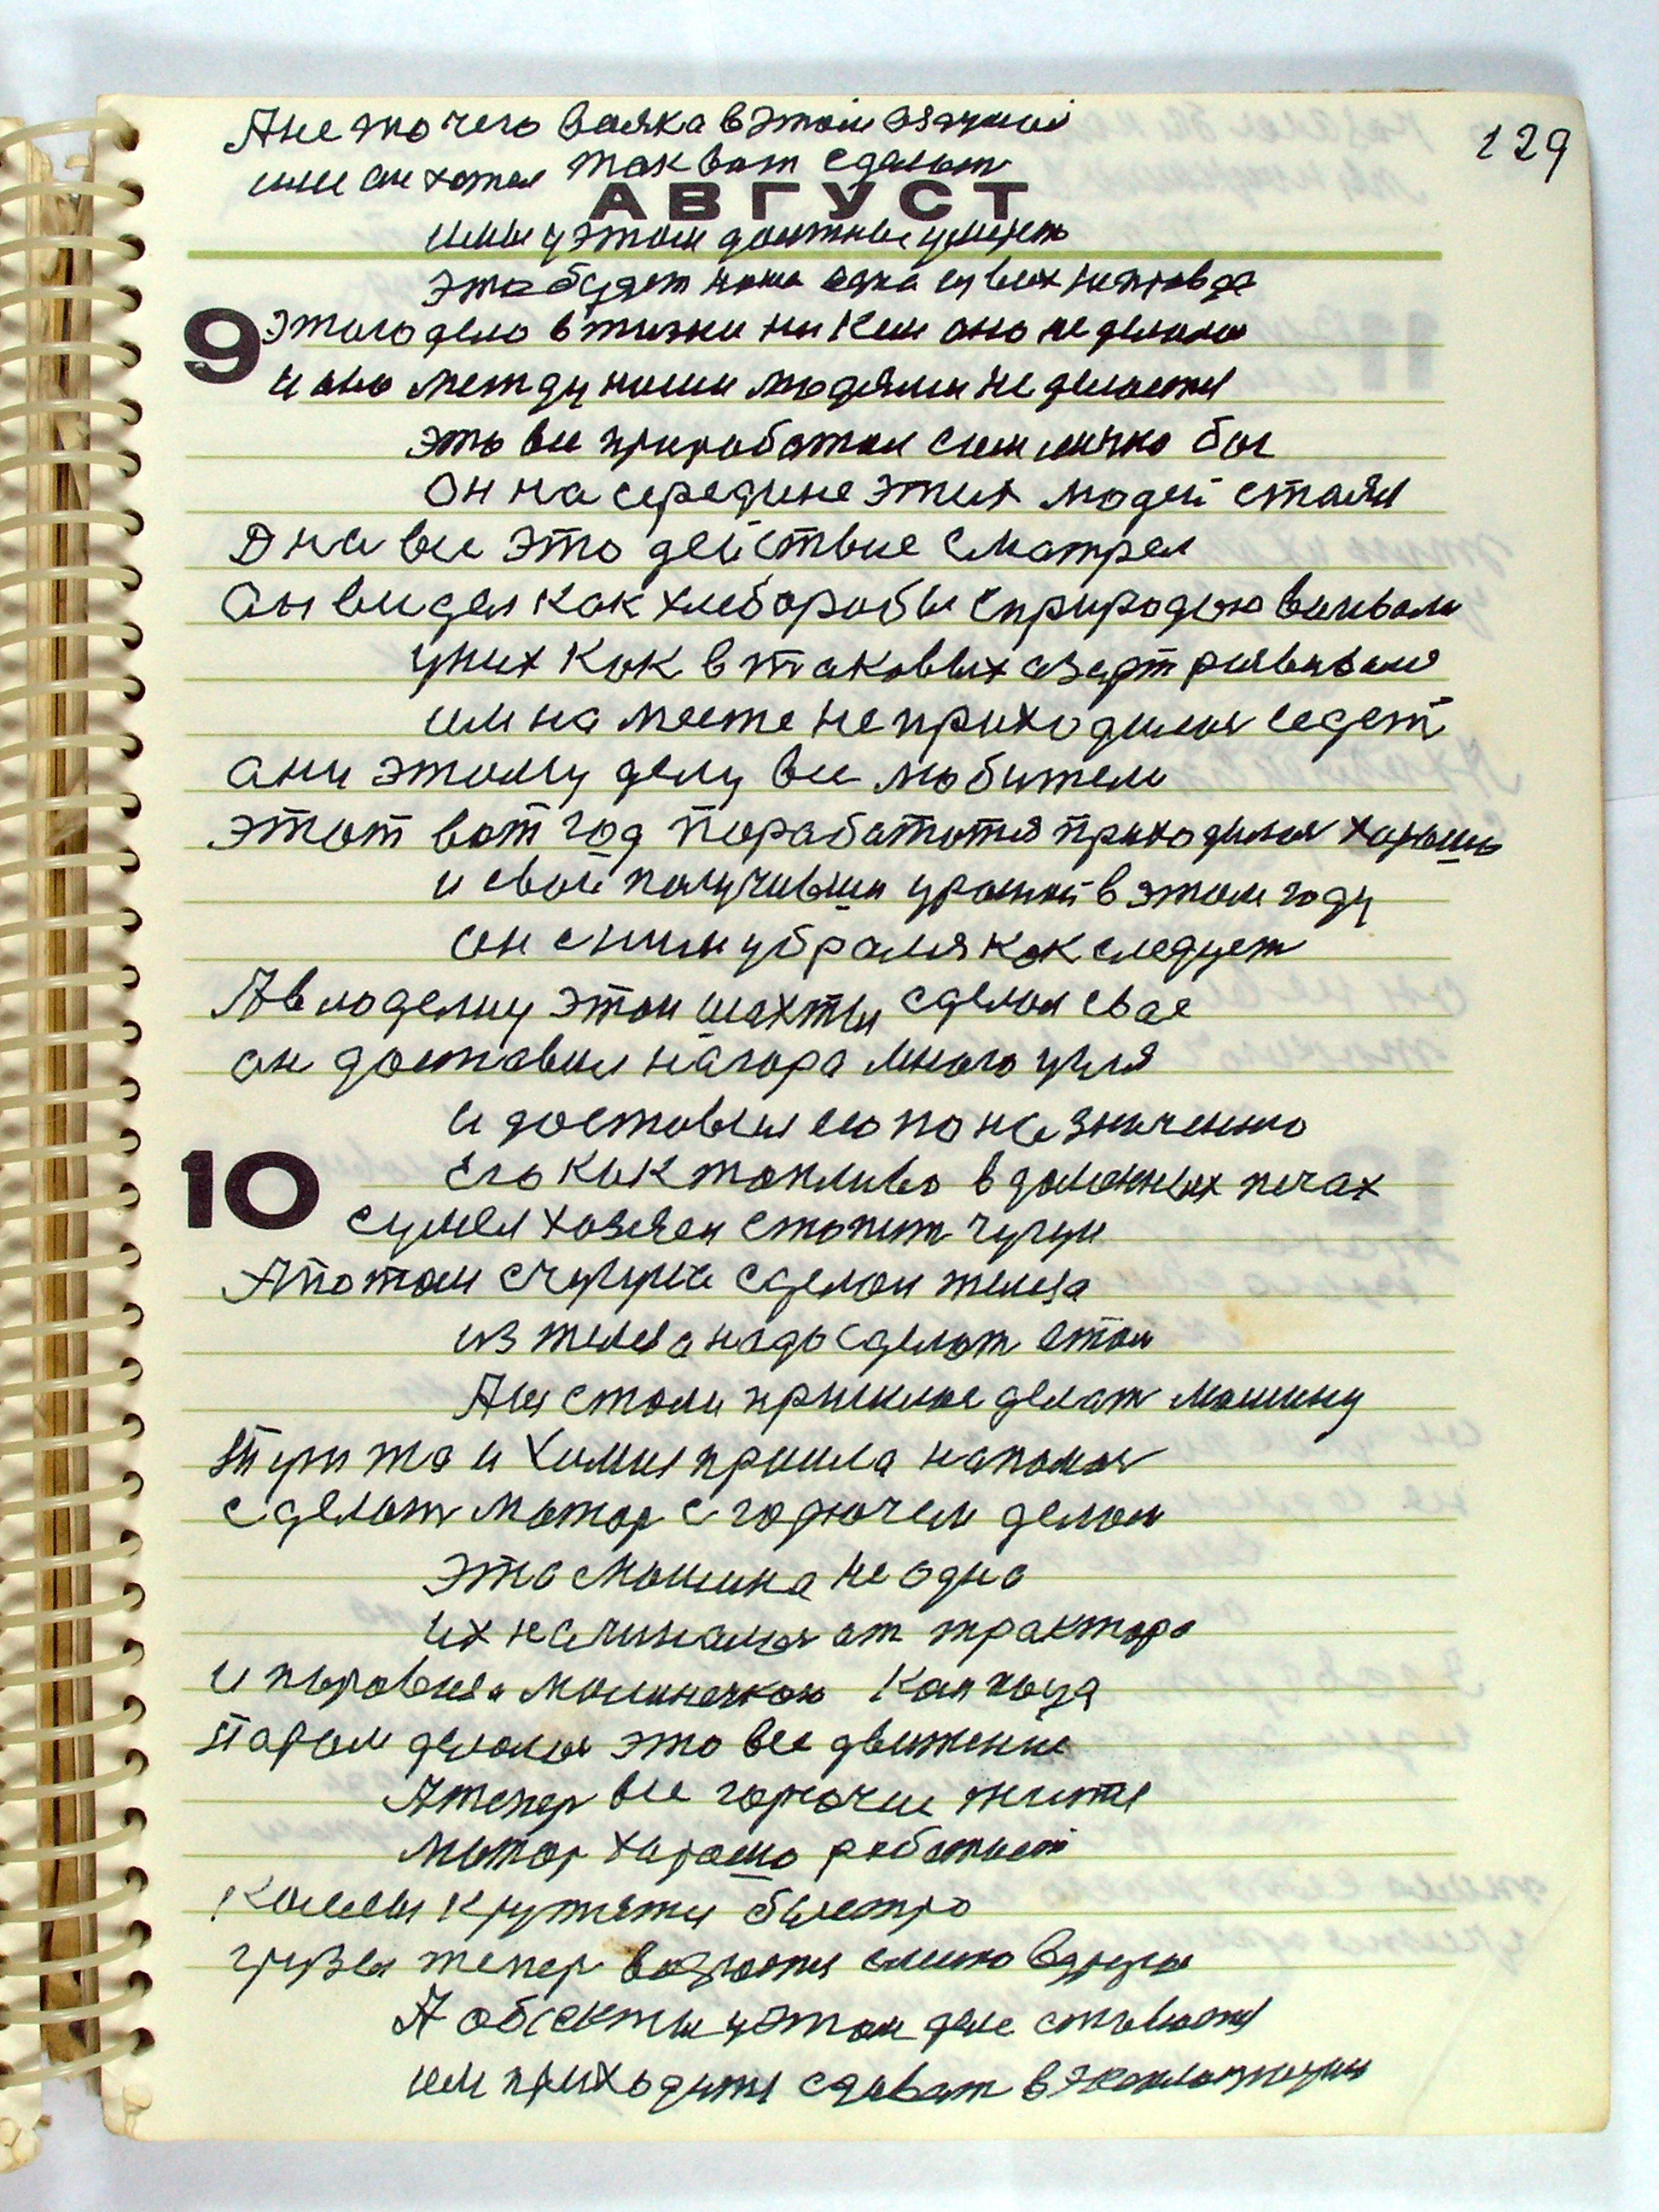 129
А не то чего вояка в этом задумал
или он хотел так вот сделат
АВГУСТ
и мы у этом должны умереть
это будет наша одна у всех неправда
9 этого дело в жизни ни кем оно не делано
и оно между ними людями не делается
это все приработал сам лично бог
Он на середине этих людей стаял
Д на все это действие сматрел
Он видел как хлеборобы с природою воивали
у них как в таковых азарт развивался
им на месте не приходился седет
они этому делу все любители
этот вот год поработатся приходился харошо
и свой получивши урожай в этом году
он с ним убрался как следует
А володелиц этой шахты сделал свае
он доставил нагора много угля
и доставил его по назначению
10 его как топливо в доменных печах
сумел хозяен стопит чугун
А потом с чугуна сделал железа
из железа надо сделат стал
А из стали пришлос делат машину
тут та и химия пришла на помоч
сделат матор с горючем делом
Эта машина не одна
их начиналося от трактора
и паровия машинечкою
Паром делался это все движение
А тепер все горючее жжется
матор харашо работает
Колесы крутятся быстро
грузы тепер возются
А обекты у этом деле ставются
им приходится сдават в эксплоатацыю